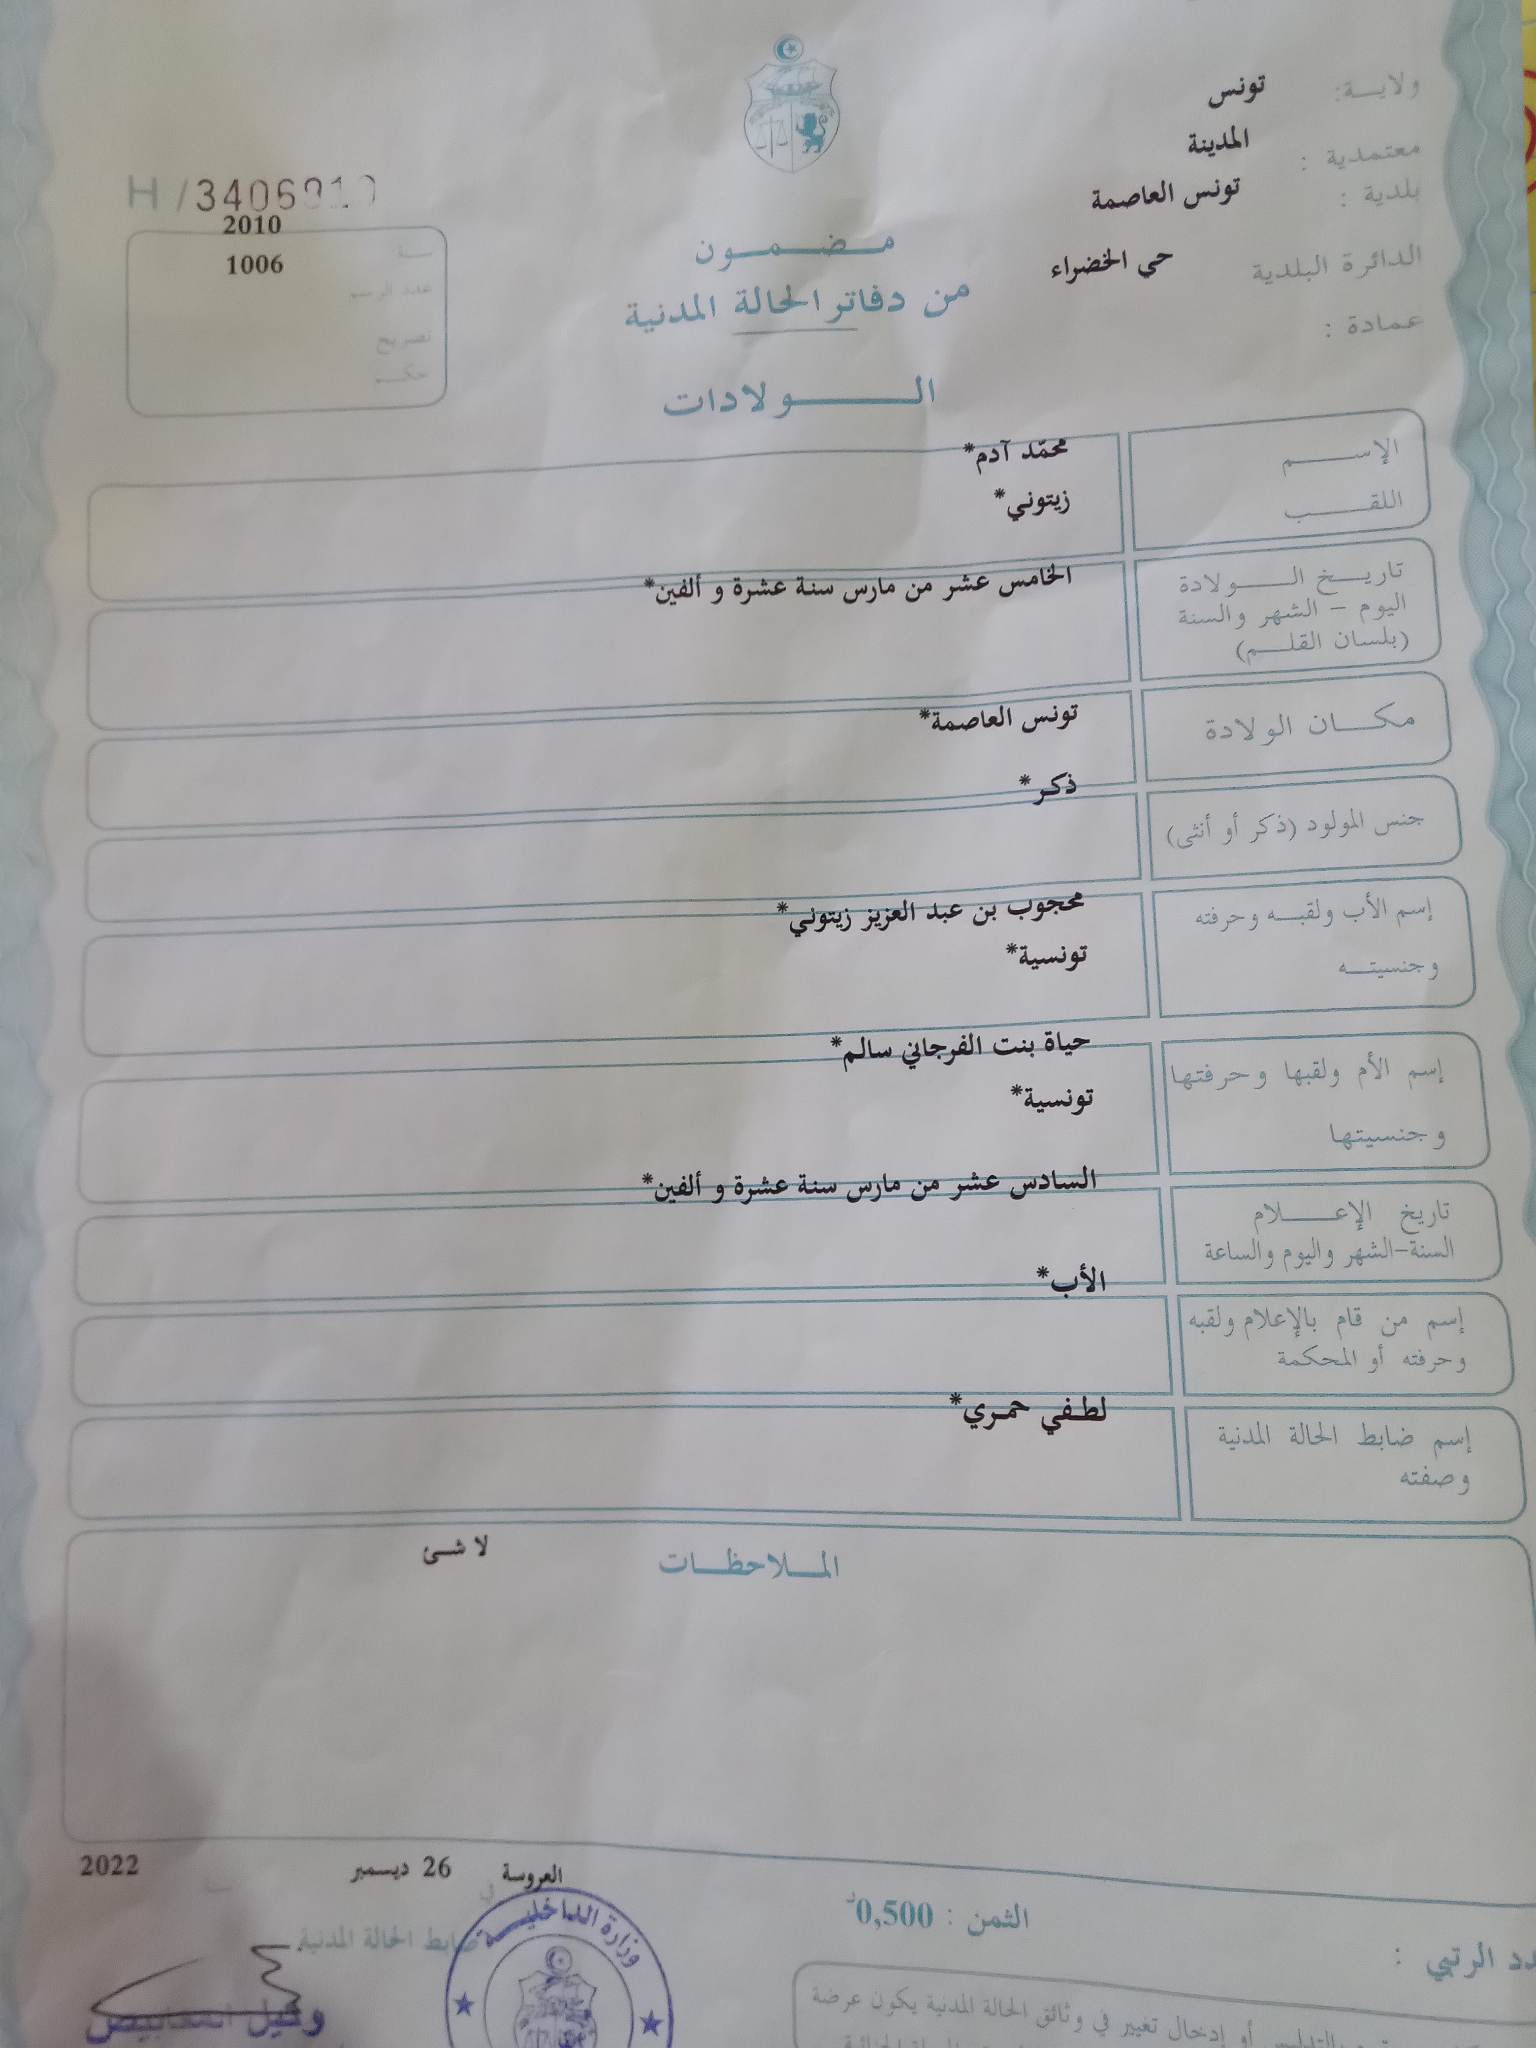 ولاية: تونس
معتمدية : المدينة
بلدية : تونس العاصمة
الدائرة البلدية حي الخضراء
عمادة :
H /3406
سنة 2010
عدد الرسم 1006
تصريح
حكم
مضمون
من دفاتر الحالة المدنية
الولادات
الإسم محمّد آدم*
اللقب زيتوني*
تاريخ الولادة الخامس عشر من مارس سنة عشرة و ألفين*
اليوم - الشهر والسنة
(بلسان القلم)
مكان الولادة تونس العاصمة*
جنس المولود (ذكر أو أنثى) ذكر*
إسم الأب ولقبه وحرفته محجوب بن عبد العزيز زيتوني*
وجنسيته تونسية*
إسم الأم ولقبها وحرفتها حياة بنت الفرجاني سالم*
وجنسيتها تونسية*
تاريخ الإعلام السادس عشر من مارس سنة عشرة و ألفين*
السنة-الشهر واليوم والساعة
إسم من قام بالإعلام ولقبه الأب*
وحرفته أو المحكمة
إسم ضابط الحالة المدنية لطفي حمري*
وصفته
الملاحظات لا شئ
العروسة 26 ديسمبر 2022
الثمن : 0,500د
ضابط الحالة المدنية
وزارة الداخلية
الرتبي :
وكيل
أو إدخال تغيير في وثائق الحالة المدنية يكون عرضة